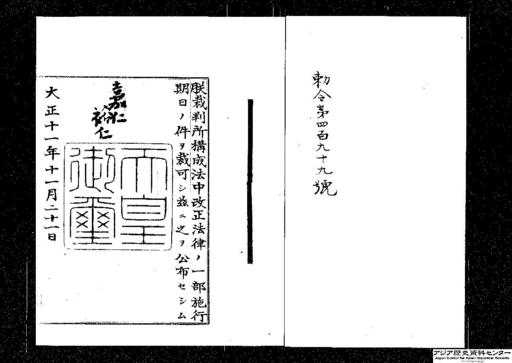 勅令第四百九十九號
朕裁判所構成法中改正法律ノ一部施行
期日ノ件ヲ裁可シ茲ニ之ヲ公布セシム
嘉仁
裕仁
天皇
御璽
大正十一年十一月二十一日
アジア歴史資料センター
Japan Center for Asian Historical Records